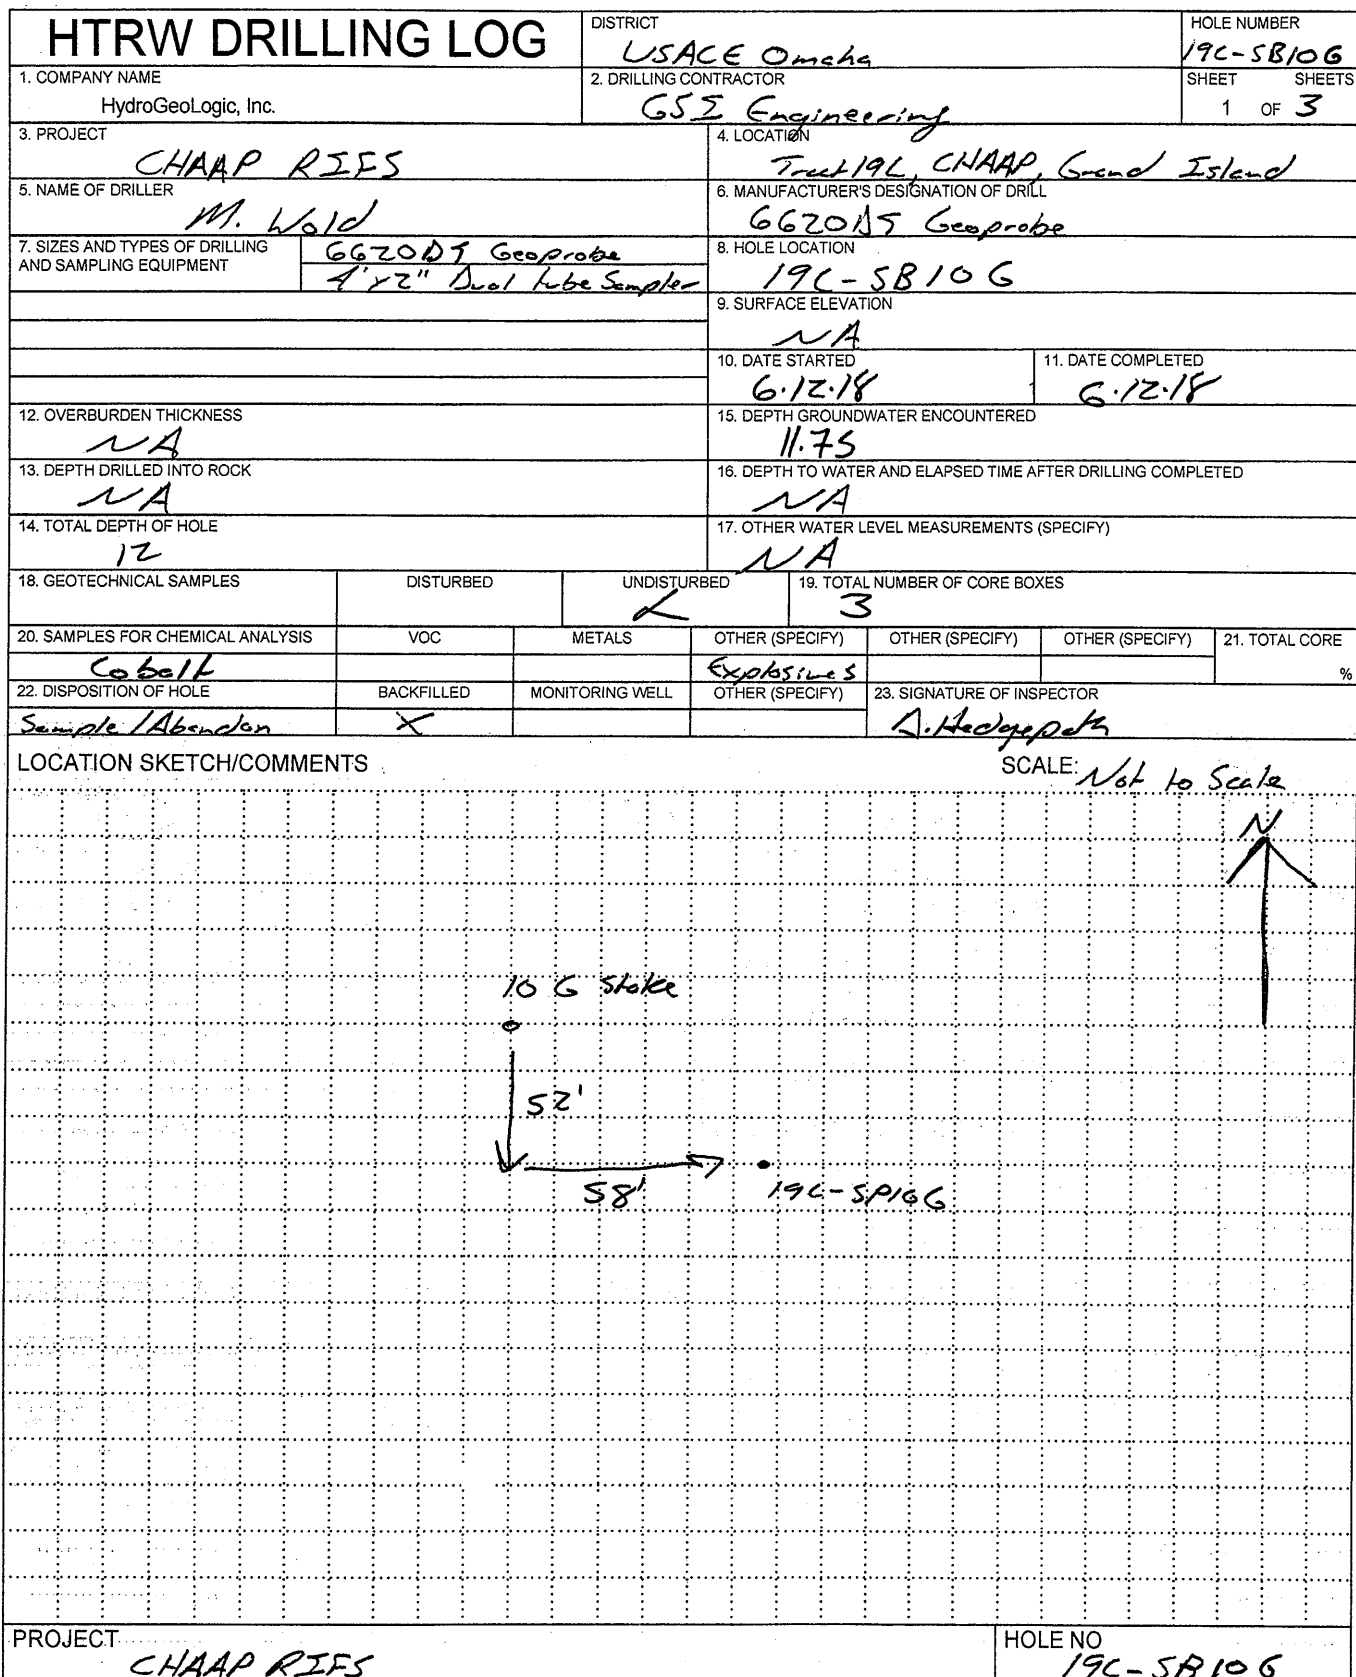 HTRW DRILLING LOG
DISTRICT
USACE Omaha
HOLE NUMBER
19C-SB10G
1. COMPANY NAME
HydroGeoLogic, Inc.
2. DRILLING CONTRACTOR
GSI Engineering
SHEET SHEETS
1 OF 3
3. PROJECT
CHAAP RIFS
4. LOCATION
Tract 19C, CHAAP, Grand Island
5. NAME OF DRILLER
M. Wold
6. MANUFACTURER'S DESIGNATION OF DRILL
6620DT Geoprobe
7. SIZES AND TYPES OF DRILLING
AND SAMPLING EQUIPMENT
6620DT Geoprobe
4'x2" Dual tube Sampler
8. HOLE LOCATION
19C-SB10G
9. SURFACE ELEVATION
NA
10. DATE STARTED
6.12.18
11. DATE COMPLETED
6.12.18
12. OVERBURDEN THICKNESS
NA
15. DEPTH GROUNDWATER ENCOUNTERED
11.75
13. DEPTH DRILLED INTO ROCK
NA
16. DEPTH TO WATER AND ELAPSED TIME AFTER DRILLING COMPLETED
NA
14. TOTAL DEPTH OF HOLE
12
17. OTHER WATER LEVEL MEASUREMENTS (SPECIFY)
NA
18. GEOTECHNICAL SAMPLES
DISTURBED
UNDISTURBED
19. TOTAL NUMBER OF CORE BOXES
3
20. SAMPLES FOR CHEMICAL ANALYSIS
VOC
METALS
OTHER (SPECIFY)
OTHER (SPECIFY)
OTHER (SPECIFY)
21. TOTAL CORE
Cobalt
Explosives
%
22. DISPOSITION OF HOLE
BACKFILLED
MONITORING WELL
OTHER (SPECIFY)
23. SIGNATURE OF INSPECTOR
Sample/Abandon
X
D. Hedgepath
LOCATION SKETCH/COMMENTS
SCALE: Not to Scale
N
10 G Stake
52'
58'
19C-SP10G
PROJECT
CHAAP RIFS
HOLE NO
19C-SB10G